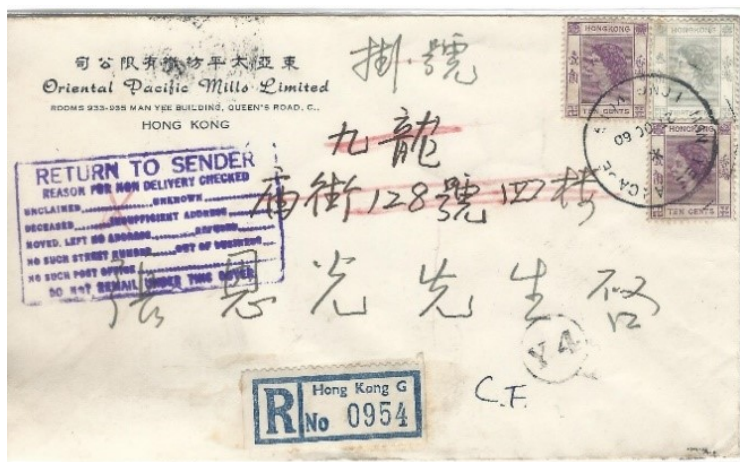 司公限有織紡平太亞東
Oriental Pacific Mills Limited
ROOMS 933-935 MAN YEE BUILDING, QUEEN'S ROAD, C.,
HONG KONG
掛號
九龍
庙街128號四楼
張恩光先生啓
RETURN TO SENDER
REASON FOR NON DELIVERY CHECKED
UNCLAIMED UNKNOWN
DECEASED INSUFFICIENT ADDRESS
MOVED, LEFT NO ADDRESS REFUSED
NO SUCH STREET NUMBER OUT OF BUSINESS
NO SUCH POST OFFICE
DO NOT REMAIL UNDER THIS COVER
HONGKONG
TEN CENTS
HONGKONG
HONGKONG
TEN CENTS
60
Y4
R
Hong Kong G
No 0954
C.F.